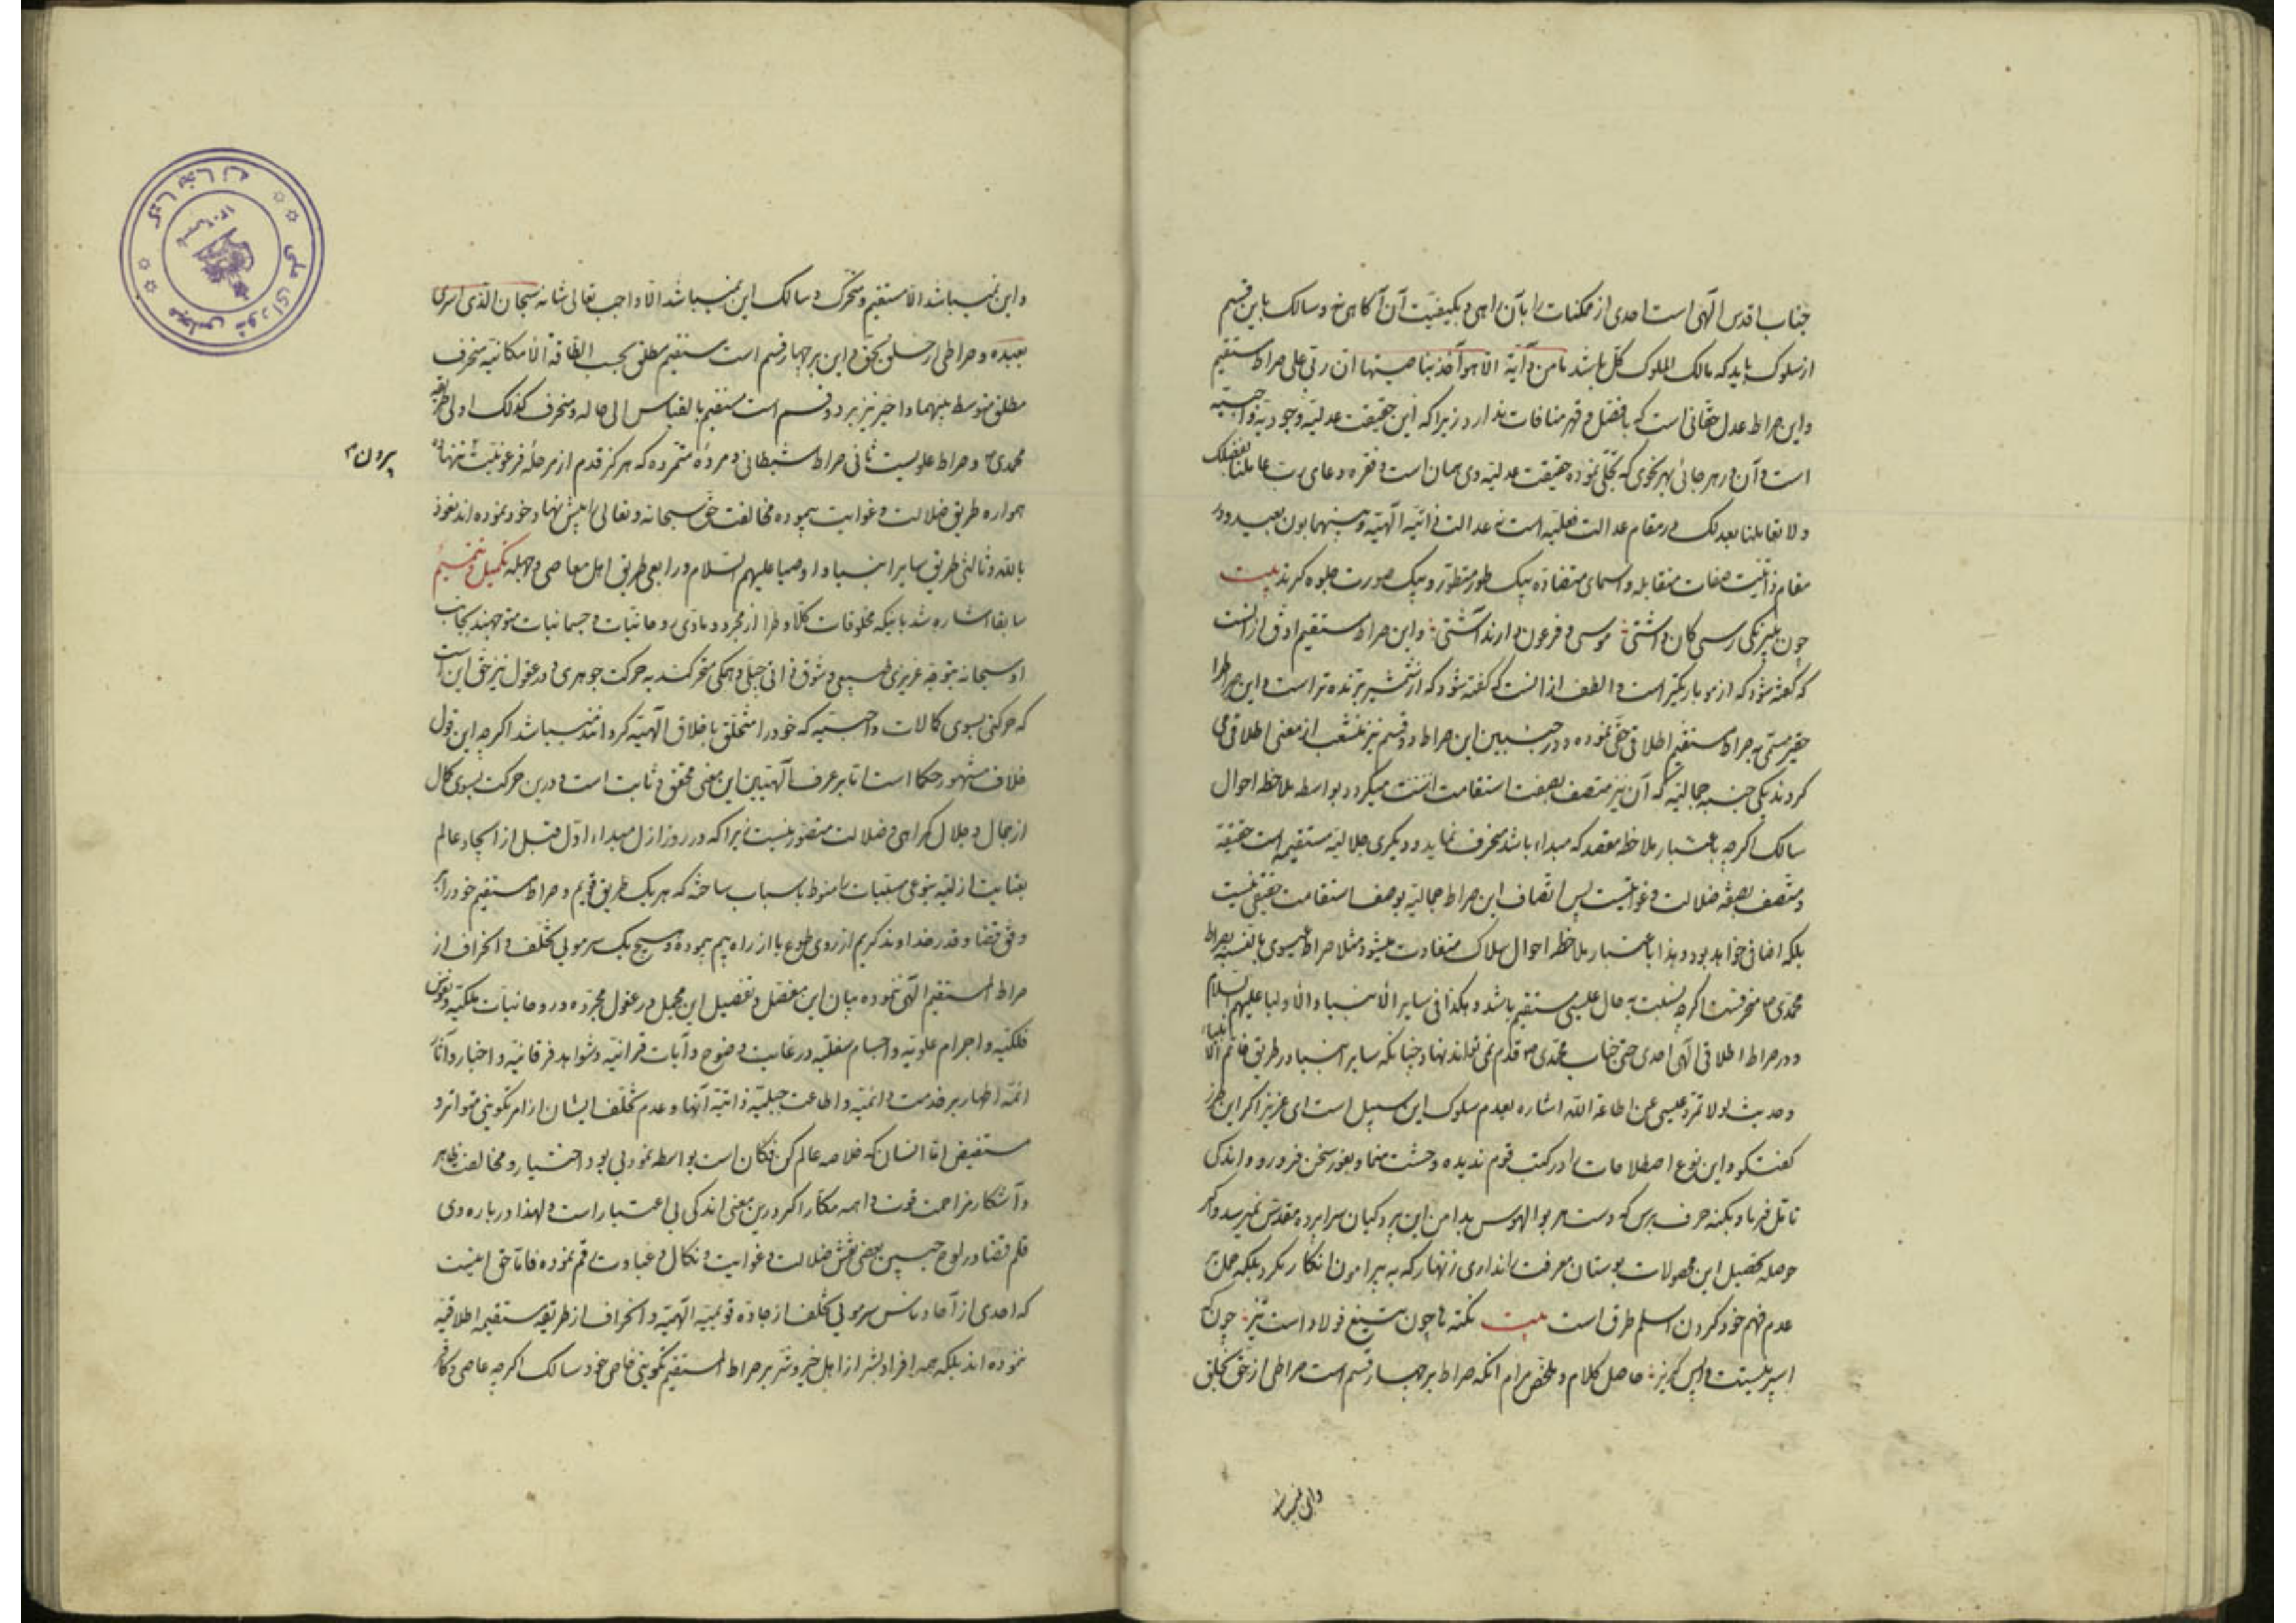 جناب اقدس الهی است احدی از ممکنات را بآن راهی و بکیفیت آن آگاهی نه و سالک باین قسم
از سلوک باید که مالک الملوک کل باشد ما من دآبة الا هو آخذ بناصیتها ان ربی علی صراط مستقیم
و این صراط عدل حقانی است که با فضل و قهر منافات ندارد زیرا که این حقیقت عدلیه وجودیه واجبیه
است و آن در هر جائی بهر نحوی که تجلی نموده حقیقت عدلیه وی همان است و فقره دعای رب عاملنا بفضلک
و لا تعاملنا بعدلک در مقام عدالت فعلیه است نه عدالت ذاتیه الهیه و بینهما بون بعید و در
مقام ذاتیت صفات متقابله و اسمای متضاده بیک طور متطور و بیک صورت جلوه گرند بیت
چون ببیرنگی رسی کان داشتی موسی و فرعون دارند آشتی و این صراط مستقیم ادق از انست
که گفته شود که از مو باریکتر است و الطف از انست که گفته شود که از شمشیر برنده تر است و این صراط را
حقیر مسمی به صراط مستقیم اطلاقی حقی نموده و در جنبین این صراط دو قسم نیز منشعب از معنی اطلاقی می
گردند یکی جنبه جمالیه که آن نیز متصف بصفت استقامت است میگردد بواسطه ملاحظه احوال
سالک اگرچه باعتبار ملاحظه مقصد که مبداء باشد منحرف نماید و دیگری جلالیه مستقیمه است حقیقة
و متصف بصفه ضلالت و غوایتست پس اتصاف این صراط جمالیه بوصف استقامت حقیقی نیست
بلکه اضافی خواهد بود و بذا باعتبار ملاحظه احوال سلاک متفاوت میشود مثلا صراط عیسوی بالنسبه بصراط
محمدی ص منحرفست اگرچه نسبت به حال عیسی مستقیم باشد و هکذا فی سایر الانبیاء و الاولیا علیهم السلام
و در صراط اطلاقی الهی احدی حتی جناب محمدی ص قدم نمی تواند نهاد چنانکه سایر انبیا در طریق خاتم الانبیاء
و حدیث لولا تمرد عیسی عن اطاعة الله اشاره بعدم سلوک این سبیل است ای عزیز اگر این طرز
گفتگو و این نوع اصطلاحات را در کتب قوم ندیده وحشت منما و بغور سخن فرو رو و اندکی
تامل فرما و بکنه حرف برس که دست هر بوالهوس بدامن این پردگیان سراپرده مقدس نمیرسد و اگر
حوصله تحصیل این محصولات بوستان معرفت را نداری زنهار که به پیرامون انکار نگرد بلکه حمل بر
عدم فهم خود کردن اسلم طرق است بیت نکته ها چون تیغ فولاد است تیز چون که
اسپر نیستت واپس گریز حاصل کلام و ملخص مرام آنکه صراط بر چهار قسم است صراطی از حق بخلق
و این نمیباشد
و این نمیباشد الا مستقیم و متحرک و سالک این نمیباشد الا واجب تعالی شانه سبحان الذی اسری
بعبده و صراطی از خلق بحق و این بر چهار قسم است مستقیم مطلق بحسب الطاقة الامکانیه منحرف
مطلق متوسط بینهما و اخیر نیز بر دو قسم است مستقیم بالقیاس الی حاله و منحرف کذلک اولی طریقه
محمدی ص و صراط علویست ثانی صراط شیطانی و مرده متمرده که هرگز قدم از مرحله فرعونیت ننهاده
بیرون
همواره طریق ضلالت و غوایت پیموده مخالفت حق سبحانه و تعالی را پیش نهاد خود نموده اند نعوذ
بالله و ثالثی طریق سایر انبیا و اوصیا علیهم السلام و رابعی طریق اهل معاصی و جهله تکمیل و تتمیم
سابقا اشاره شد باینکه مخلوقات کلا و طرا از مجرد و مادی روحانیات و جسمانیات متوجهند بجانب
او سبحانه بتوجه غریزی طبیعی و شوق ذاتی جبلی و همگی متحرکند به حرکت جوهری و در عقول نیز حق این است
که حرکتی بسوی کمالات واجبیه که خود را متخلق باخلاق الهیه گردانند میباشد اگرچه این قول
خلاف مشهور حکما است اما بر عرفا الهیین این معنی محقق و ثابت است و درین حرکت بسوی کمال
از جمال و جلال گمراهی و ضلالت متصور نیست زیرا که در روز ازل مبداء اول قبل از ایجاد عالم
بعنایت ازلیه بنوعی مسببات را منوط باسباب ساخته که هر یک طریق قویم و صراط مستقیم خود را بر
وفق قضا و قدر خداوند کریم از روی طوع یا از راه بیم پیموده و هیچ یک سر مویی تخلف و انحراف از
صراط المستقیم الهی ننموده بیان این مفصل و تفصیل این مجمل در عقول مجرده و روحانیات ملکیه و نفوس
فلکیه و اجرام علویه و اجسام سفلیه در غایت وضوح و آیات قرانیه و شواهد فرقانیه و اخبار و آثار
ائمه اطهار بر خدمت دائمیه و اطاعت جبلیه ذاتیه آنها و عدم تخلف ایشان از امر تکوینی متواتر و
مستفیض اما انسان که خلاصه عالم کن فکان است بواسطه نمود بی بود اختیار و مخالفت ظاهر
و آشکار مزاحمت قوت واهمه مکار اگر درین معنی اندکی بی اعتبار است و لهذا درباره وی
قلم قضا در لوح جبین بعضی نقش ضلالت و غوایت و نکال و غباوت رقم نموده فاما حق اینست
که احدی از آحاد ناس سر مویی تخلف از جاده قویمیه الهیه و انحراف از طریقه مستقیمه اطلاقیه
ننموده اند بلکه همه افراد بشر از اهل خیر و شر بر صراط المستقیم تکوینی خاص خود سالک اگرچه عاصی و کافر